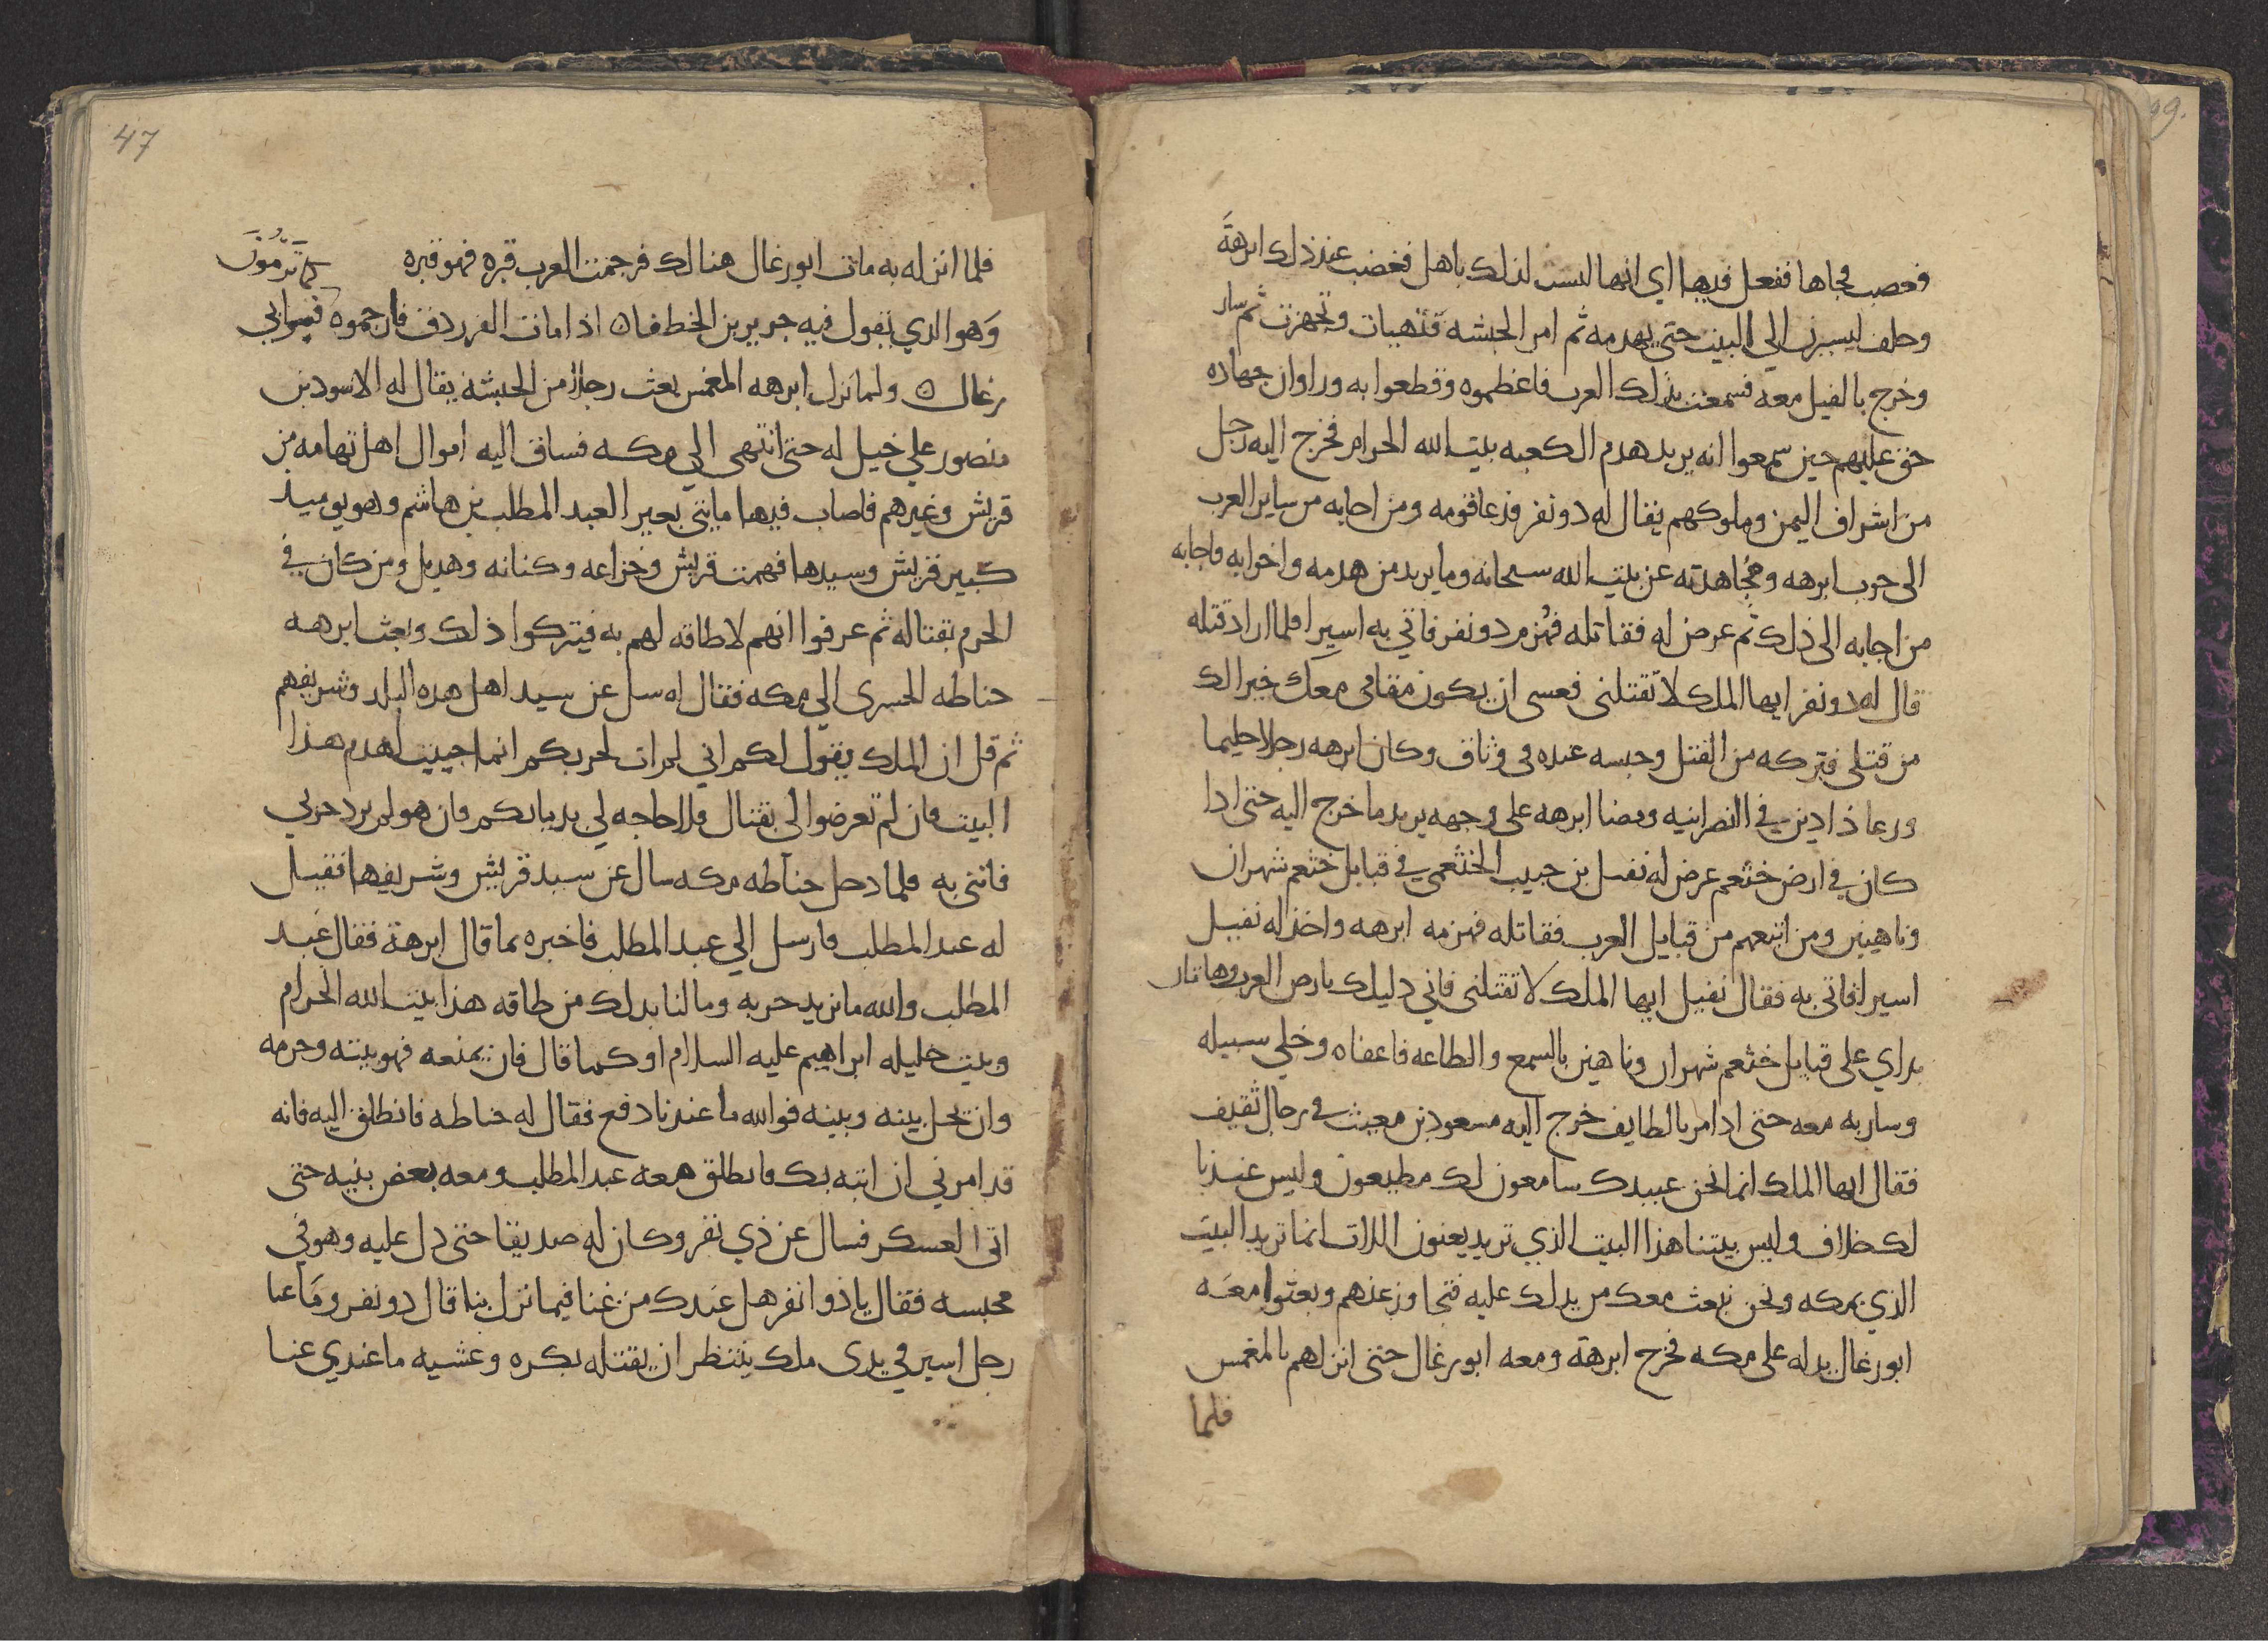 فغصب فجاها ففعل فيها اي انها ليست لذلك باهل فغضب عند ذلك ابرهة
وحلف ليسيرن الي البيت حتى يهدمه ثم امر الحبشه فتهيات وتجهزت ثم سار
وخرج بالفيل معه فسمعت بذلك العرب فاعظموه وقطعوا به وراوا ان جهاده
حق عليهم حين سمعوا انه يريد هدم الكعبه بيت الله الحرام فخرج اليه رجل
من اشراف اليمن وملوكهم يقال له دو نفر فدعا قومه ومن اجابه من ساير العرب
الى حرب ابرهه ومجاهدته عن بيت الله سبحانه وما يريد من هدمه واخرابه فاجابه
من اجابه الى ذلك ثم عرض له فقاتله فهزم دو نفر فاتي به اسيرا فلما اراد قتله
قال له دو نفر ايها الملك لا تقتلني فعسى ان يكون مقامي معك خير الك
من قتلي فتركه من القتل وحبسه عنده في وثاق وكان ابرهه رجلا حليما
ورعا ذا دين في النصرانيه ومضا ابرهه على وجهه يريد ما خرج اليه حتى ادا
كان في ارض خثعم عرض له نفيل بن حبيب الخثعمي في قبايل خثعم شهران
وناهيس ومن اتبعهم من قبايل العرب فقاتله فهزمه ابرهه واخذ له نفيل
اسيرا فاتى به فقال نفيل ايها الملك لا تقتلني فاني دليلك بارض العرب وهاتان
يداي على قبايل خثعم شهران وناهيس بالسمع والطاعه فاعفاه وخلي سبيله
وسار به معه حتى ادا مر بالطايف خرج اليه مسعود بن معيث في رجال ثقيف
فقال ايها الملك انما نحن عبيدك سامعون لك مطيعون وليس عندنا
لك خلاف وليس بيتنا هذا البيت الذي تريد يعنون اللات انما تريد البيت
الذي بمكه ونحن نبعث معك من يدلك عليه فتجاوز عنهم وبعثوا معه
ابو رغال يدله على مكه فخرج ابرهة ومعه ابو رغال حتى انزلهم بالمغمس
فلما
47
فلما انزله به مات ابو رغال هنالك فرجمت العرب قبره فهو قبره كما ترمون
وهو الدي يقول فيه جرير بن الخطفان اذا مات الفرزدق فارجموه قبر ابي
رغال ولما نزل ابرهه المغمس بعث رجلا من الحبشه يقال له الاسود بن
منصور علي خيل له حتى انتهى الي مكه فساق اليه اموال اهل تهامه من
قريش وغيرهم فاصاب فيها مايتي بعير العبد المطلب بن هاشم وهو يوميد
كبير قريش وسيدها فهمت قريش وخزاعه وكنانه وهديل ومن كان في
الحرم بقتاله ثم عرفوا انهم لا طاقه لهم به فيتركوا ذلك وبعث ابرهه
حناطه الحميري الي مكه فقال له سل عن سيد اهل هده البلد وشريفهم
ثم قل ان الملك يقول لكم اني لم ات لحربكم انما جييت لهدم هذا
البيت فان لم تعرضوا لي بقتال فلا حاجه لي بدمايكم فان هو لم يرد حربي
فاتني به فلما دخل حناطه مكه سال عن سيد قريش وشريفها فقيل
له عبد المطلب فارسل الي عبد المطلب فاخبره بما قال ابرهة فقال عبد
المطلب والله ما نريد حربه وما لنا بدلك من طاقه هذا بيت الله الحرام
وبيت خليله ابراهيم عليه السلام او كما قال فان يمنعه فهو بيته وحرمه
وان يحل بينه وبينه فوالله ما عندنا دفع فقال له حناطه فانطلق اليه فانه
قد امرني ان اتيه بك فانطلق معه عبد المطلب ومعه بعض بنيه حتى
اتى العسكر فسال عن ذي نفر وكان له صديقا حتى دل عليه وهو في
محبسه فقال يا ذوا نفر هل عندك من غنا فيما نزل بنا قال دو نفر وما غنا
رجل اسير في يدى ملك ينتظر ان يقتله بكره وعشيه ما عندي غنا